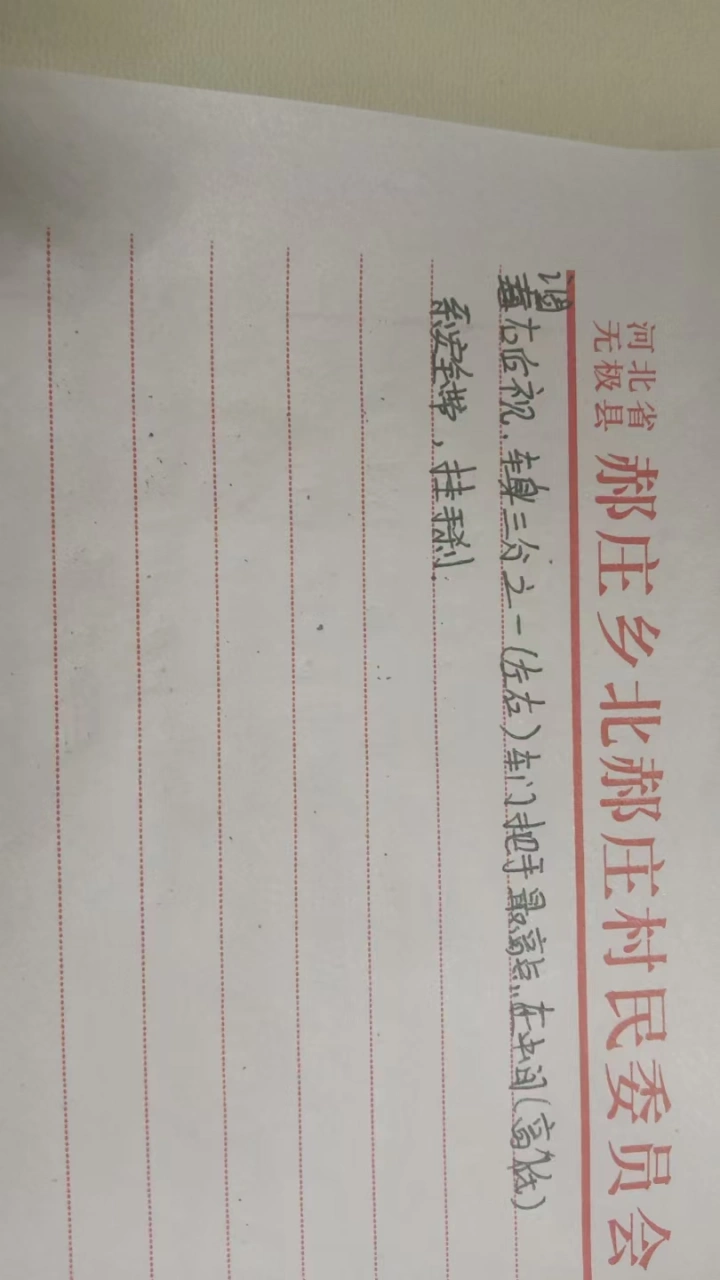 河北省
无极县
郝庄乡北郝庄村民委员会
调
看左右后视，车身三分之一(左右)车门把手最高点，在中间(高低)
系安全带，挂手刹